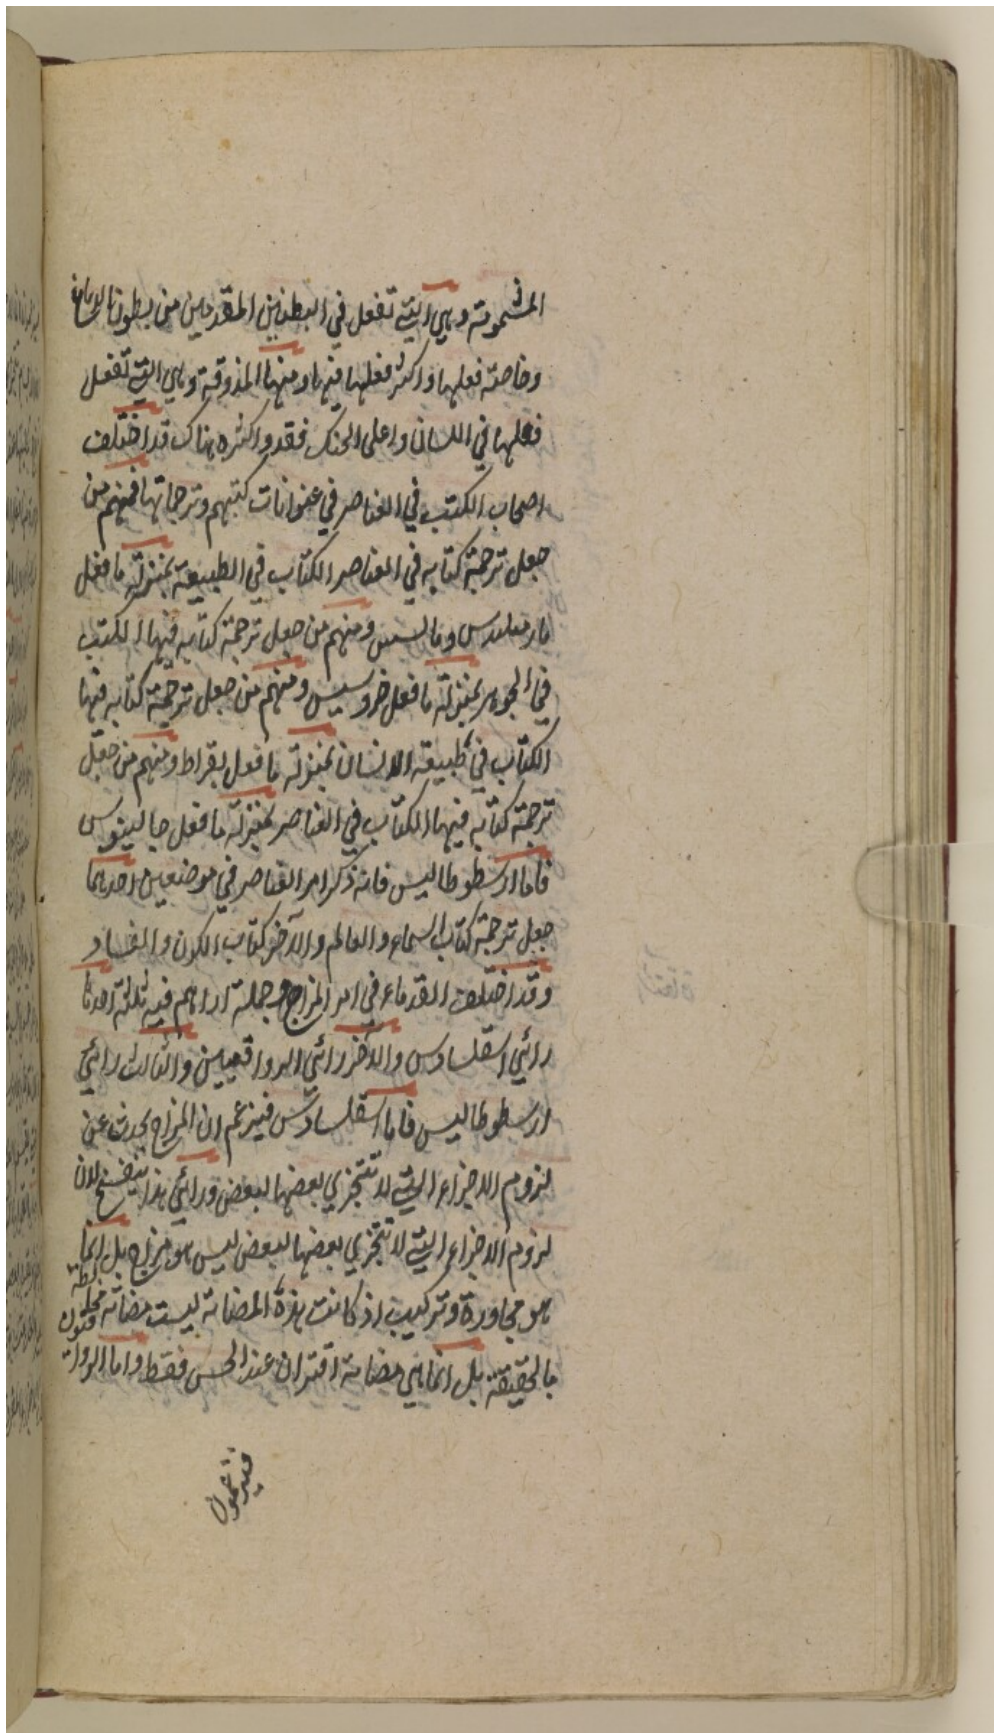 المشمومة وهي التي تفعل في البطنين المقدمين من بطون الدماغ
وخاصته فعلها واكثر فعلها فيها ومنها المذوقة وهي التي تفعل
فعلها في اللسان واعلى الحنك فقد واكثره هناك قد اختلف
اصحاب الكتب في العناصر في عنوانات كتبهم وترجماتها فمنهم من
جعل ترجمة كتابه في العناصر الكتاب في الطبيعة بمنزلة ما فعل
ومنهم من جعل ترجمة كتابه فيها الكتب
في الجوهر بمنزلة ما فعل خروسيس ومنهم من جعل ترجمة كتابه فيها
الكتاب في طبيعة الانسان بمنزلة ما فعل بقراط ومنهم من جعل
ترجمة كتابه فيها الكتاب في العناصر بمنزلة ما فعل جالينوس
فاما ارسطوطاليس فانه ذكر امر العناصر في موضعين احدهما
جعل ترجمة كتاب السماء والعالم والآخر كتاب الكون والفساد
وقد اختلف القدماء في امر المزاج وجملة اراهم فيه ثلثة احدها
رائي اسقلسادس والآخر رائي الرواقعيين والثالث رائي
ارسطوطاليس فاما اسقلسادس فيزعم ان المزاج يحدث عن
لزوم الاجزاء التي لا تتجزي بعضها لبعض ورائي هذا ينفسخ لان
لزوم الاجزاء التي لا تتجزي بعضها لبعض ليس هو مزاج بل انما
هو مجاورة وتركيب اذ كانت هذه المضامة ليست مضامة مخالطة
بالحقيقة بل انما هي مضامة اقتران عند الحس فقط واما الرواقيون
فيزعمون